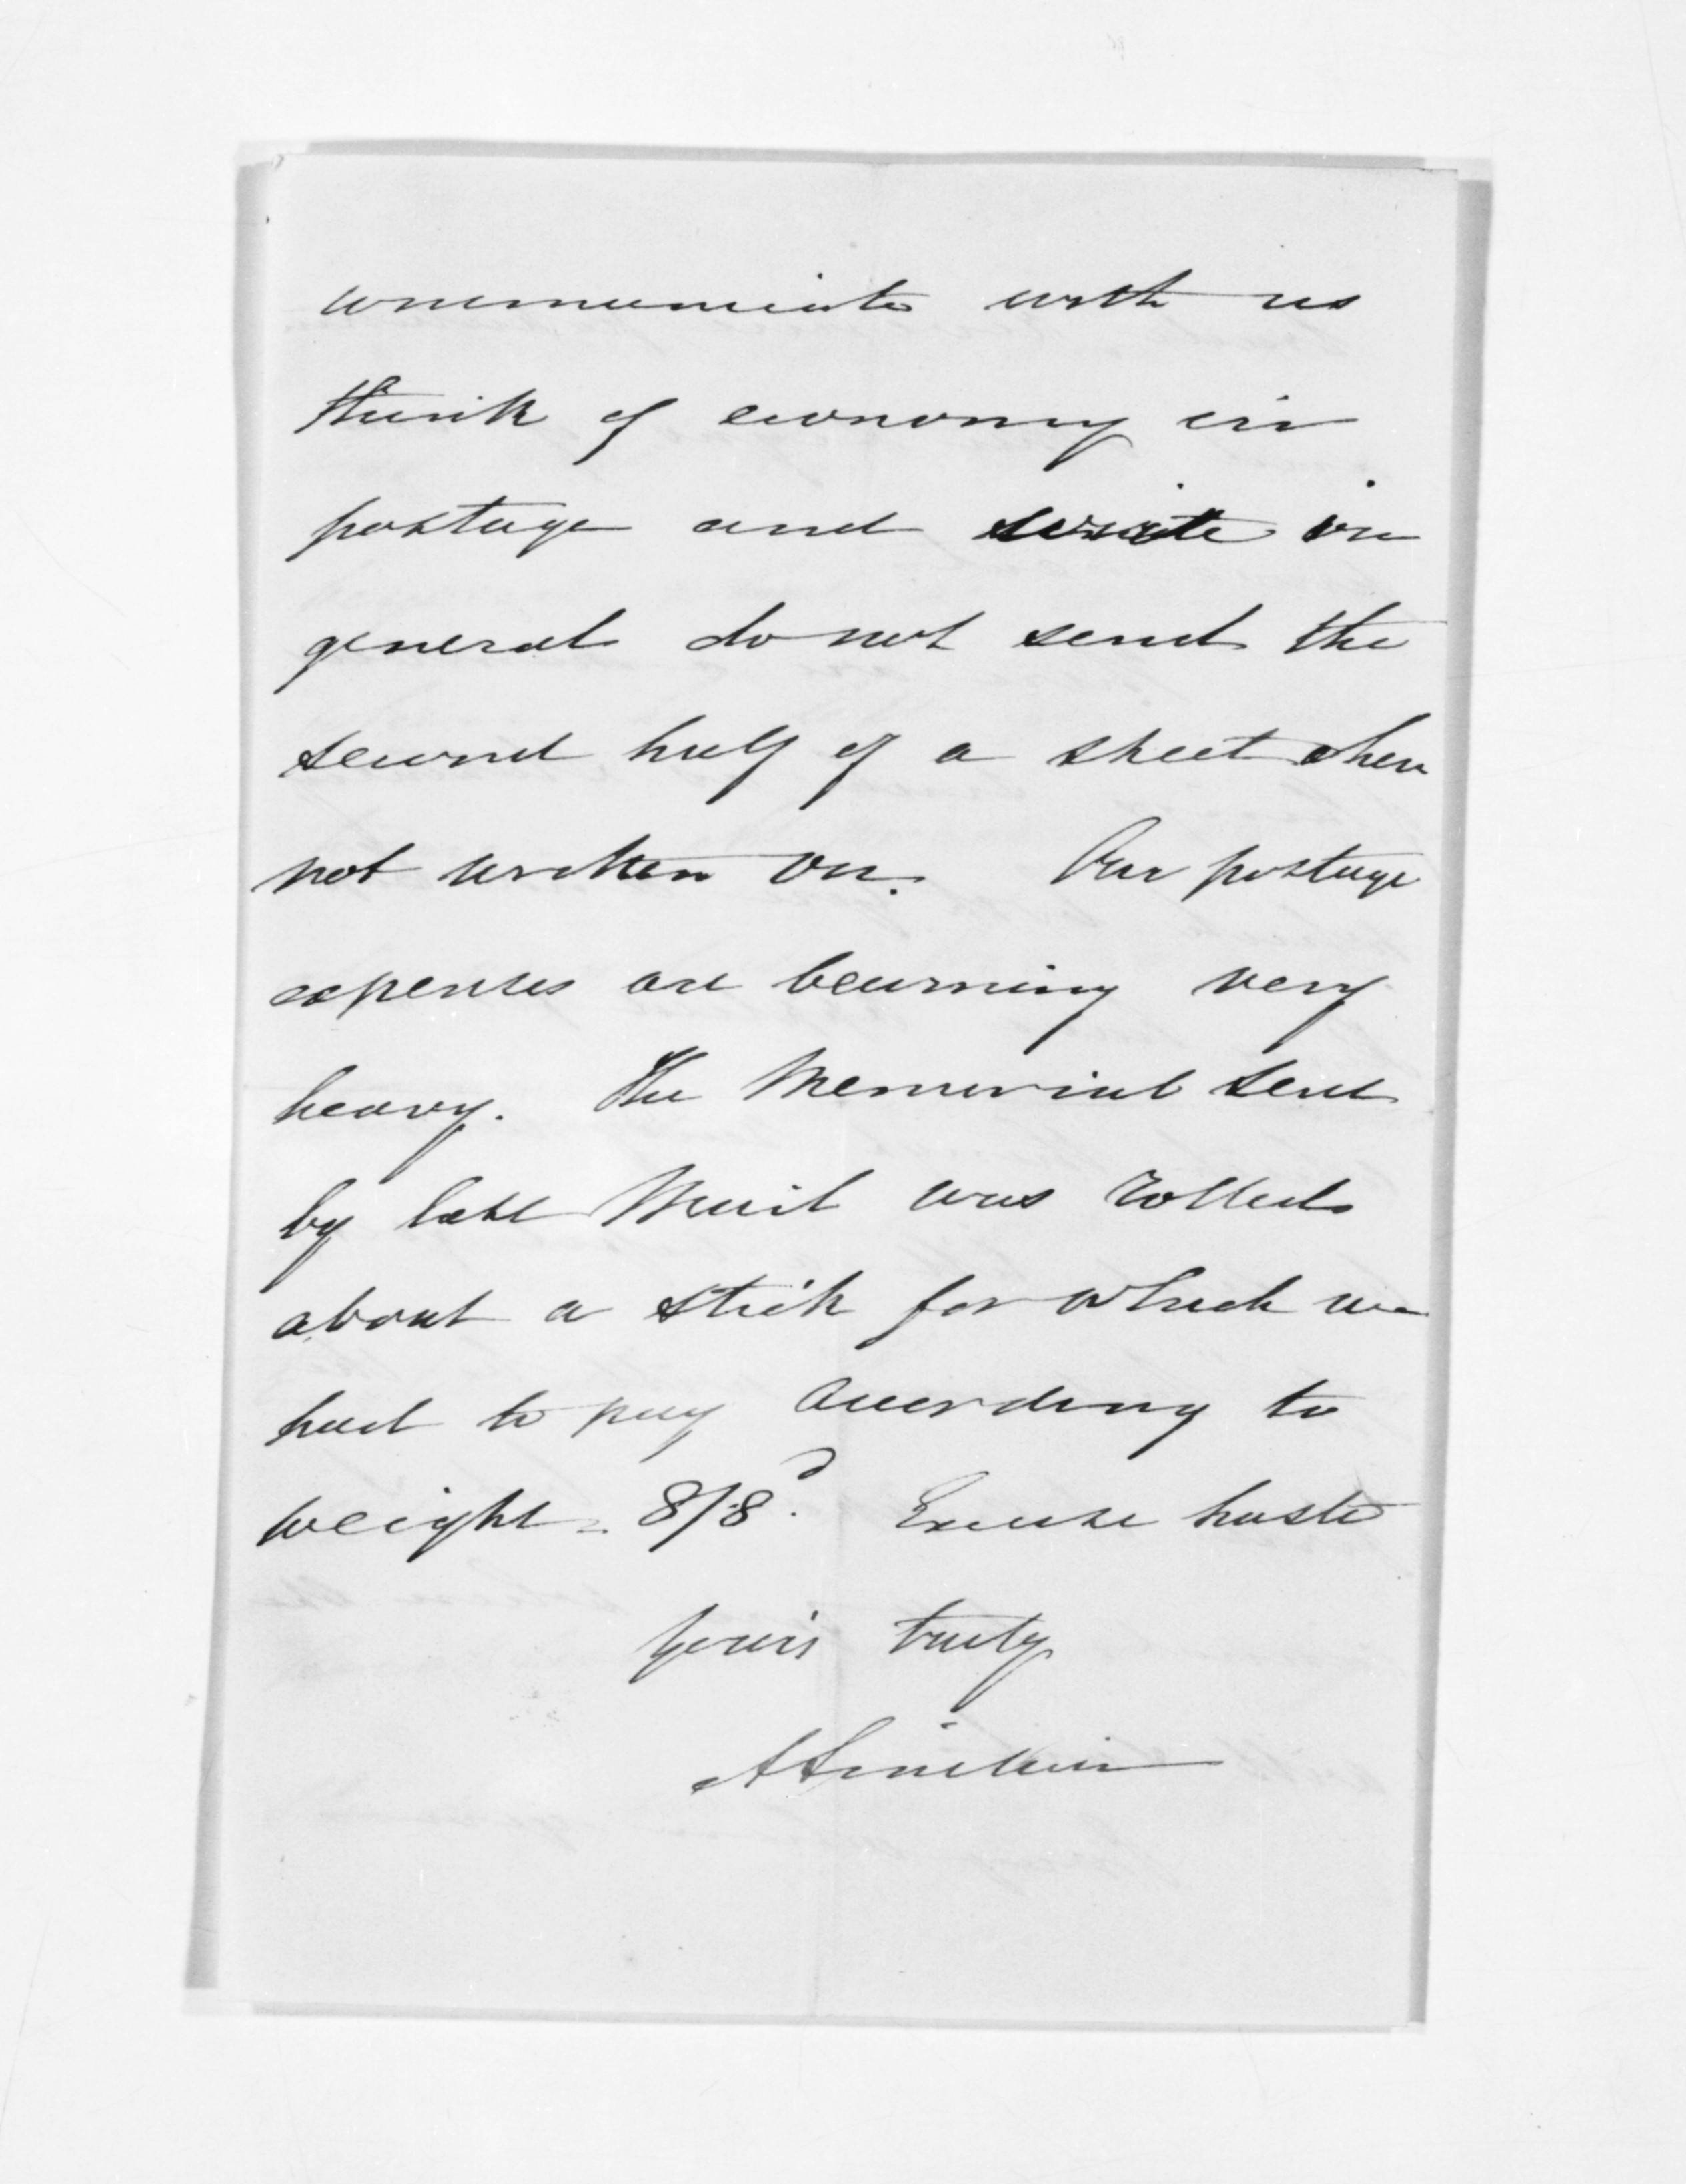 communicate with us
think of economy in
postage and write in
general do not send the
second half of a sheet when
not written on. Our postage
expenses are becoming very
heavy. The Memorial sent
by last Mail was rolled
about a stick for which we
had to pay according to
weight = 8/8d. Excuse haste
Yours truly
A Sinclair